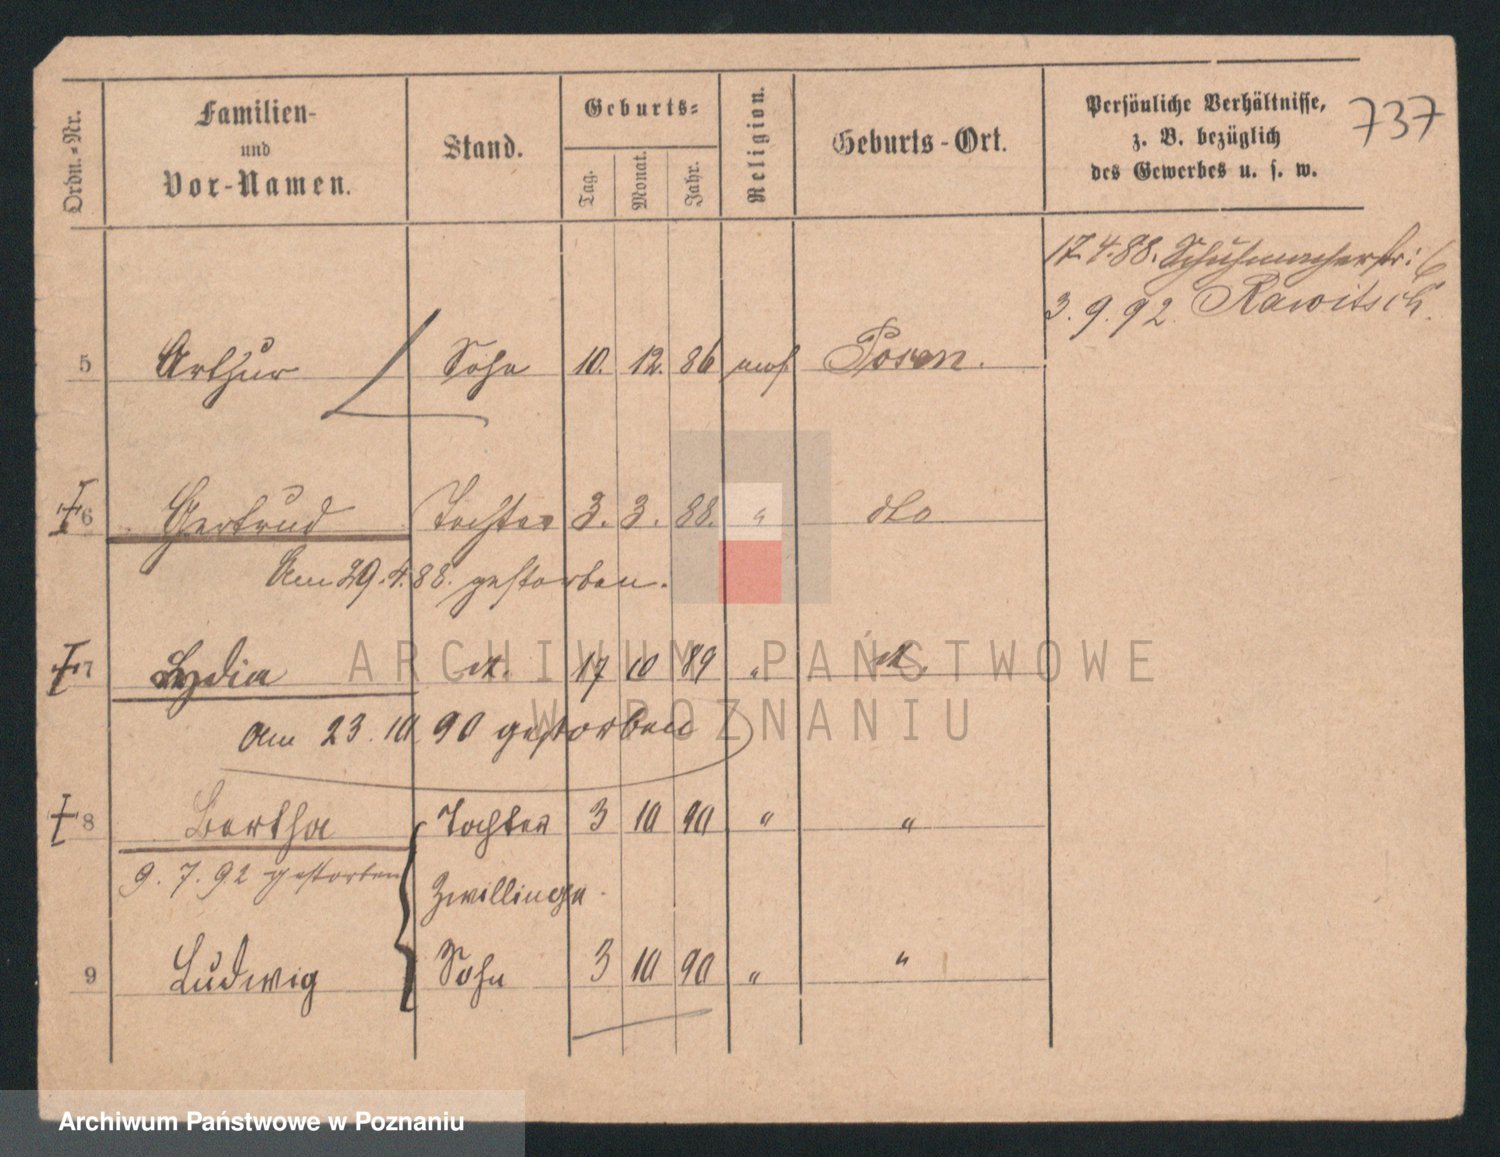 Ordn.-Nr.
Familien-
und
Vor-Namen.
Stand.
Geburts-
Tag.
Monat.
Jahr.
Religion.
Geburts-Ort.
Persönliche Verhältnisse,
z. B. bezüglich
des Gewerbes u. s. w.
737
17.4.88. Schuhmacherstr: 6
3. 9. 92. Rawitsch.
5 Arthur Sohn 10. 12. 86 mos Posen.
6 Gertrud Tochter 3. 3. 88. " dto
Am 29.4.88. gestorben.
7 Lydia dt. 17 10 89 " dt.
Am 23.10 90 gestorben
8 Bertha Tochter 3 10 90 " "
9. 7. 92 gestorben
Zwillinge
9 Ludwig Sohn 3 10 90 " "
ARCHIWUM PAŃSTWOWE
W POZNANIU
Archiwum Państwowe w Poznaniu